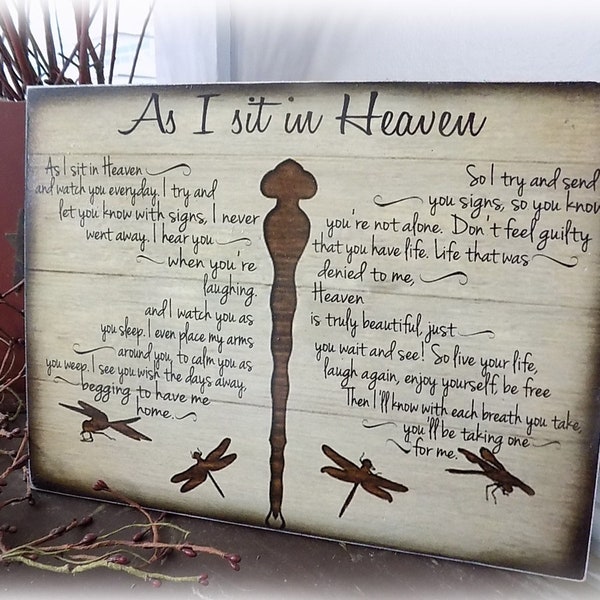 As I sit in Heaven
As I sit in Heaven
and watch you everyday. I try and
let you know with signs, I never
went away. I hear you
when you're
laughing.
and I watch you as
you sleep. I even place my arms
around you, to calm you as
you weep. I see you wish the days away,
begging to have me
home.
So I try and send
you signs, so you know
you're not alone. Don't feel guilty
that you have life. Life that was
denied to me,
Heaven
is truly beautiful, just
you wait and see! So live your life,
laugh again, enjoy yourself, be free
Then I'll know with each breath you take,
you'll be taking one
for me.